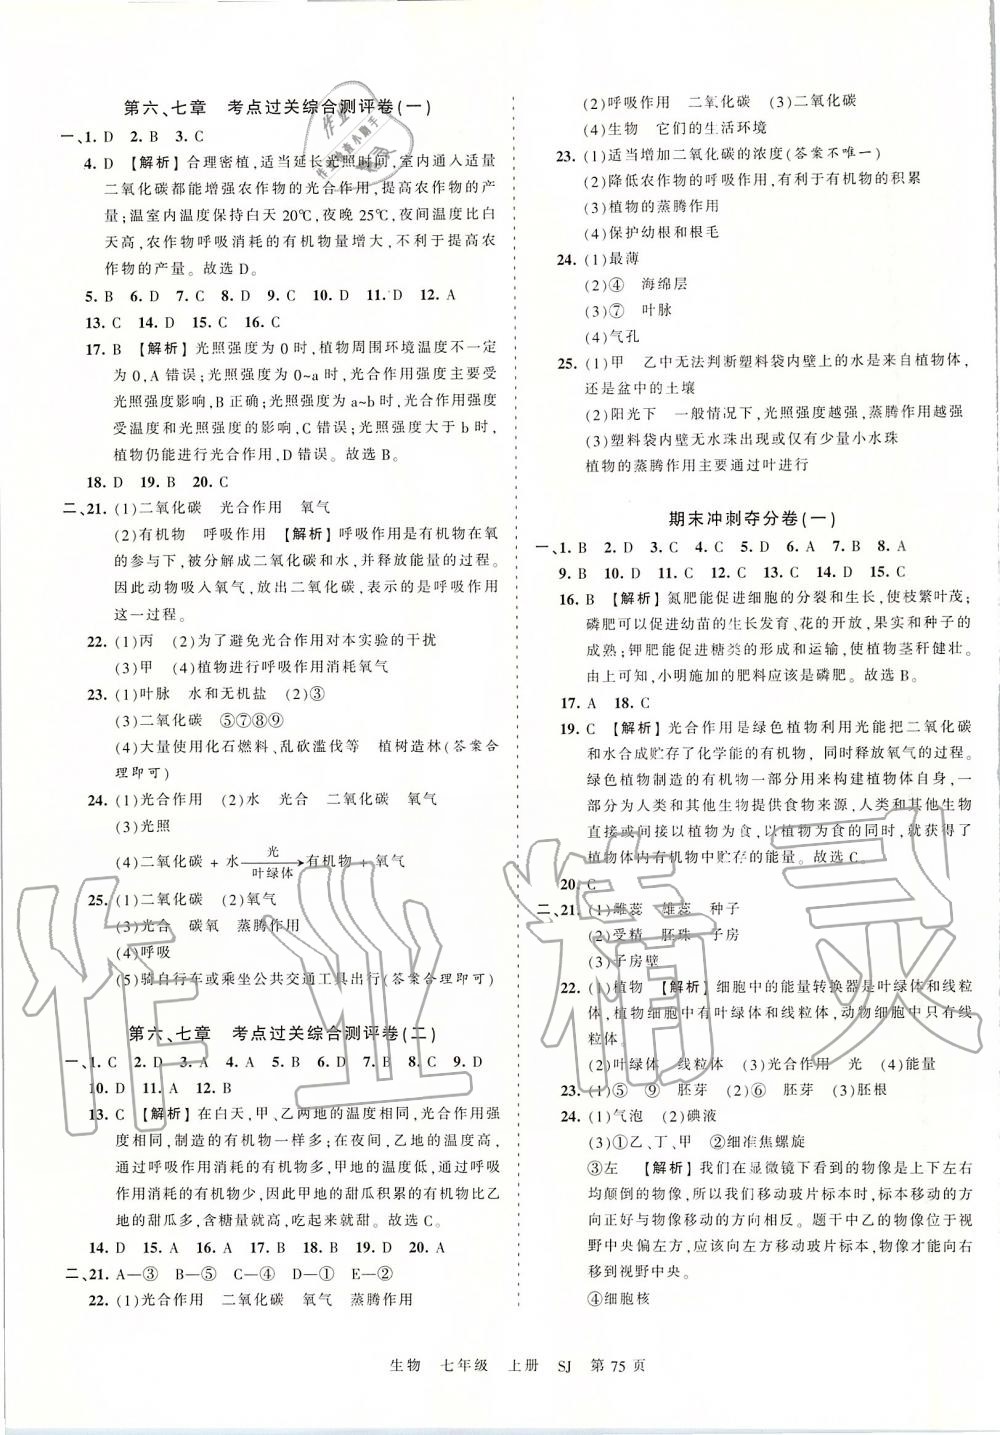 第六、七章 考点过关综合测评卷(一)
一、1. D 2. B 3. C
4. D 【解析】合理密植,适当延长光照时间,室内通入适量
二氧化碳都能增强农作物的光合作用,提高农作物的产
量;温室内温度保持白天20℃,夜晚25℃,夜间温度比白
天高,农作物呼吸消耗的有机物量增大,不利于提高农
作物的产量。故选D。
5. B 6. D 7. C 8. D 9. C 10. D 11. D 12. A
13. C 14. D 15. C 16. C
17. B 【解析】光照强度为0时,植物周围环境温度不一定
为0,A错误;光照强度为0~a时,光合作用强度主要受
光照强度影响,B正确;光照强度为a~b时,光合作用强度
受温度和光照强度的影响,C错误;光照强度大于b时,
植物仍能进行光合作用,D错误。故选B。
18. D 19. B 20. C
二、21. (1)二氧化碳 光合作用 氧气
(2)有机物 呼吸作用 【解析】呼吸作用是有机物在氧
的参与下,被分解成二氧化碳和水,并释放能量的过程。
因此动物吸入氧气,放出二氧化碳,表示的是呼吸作用
这一过程。
22. (1)丙 (2)为了避免光合作用对本实验的干扰
(3)甲 (4)植物进行呼吸作用消耗氧气
23. (1)叶脉 水和无机盐 (2)③
(3)二氧化碳 ⑤⑦⑧⑨
(4)大量使用化石燃料、乱砍滥伐等 植树造林(答案合
理即可)
24. (1)光合作用 (2)水 光合 二氧化碳 氧气
(3)光照
(4)二氧化碳 + 水 光 叶绿体 → 有机物 + 氧气
25. (1)二氧化碳 (2)氧气
(3)光合 碳氧 蒸腾作用
(4)呼吸
(5)骑自行车或乘坐公共交通工具出行(答案合理即可)
第六、七章 考点过关综合测评卷(二)
一、1. C 2. D 3. A 4. A 5. B 6. B 7. B 8. C 9. D
10. D 11. A 12. B
13. C 【解析】在白天,甲、乙两地的温度相同,光合作用强
度相同,制造的有机物一样多;在夜间,乙地的温度高,
呼吸作用消耗的有机物多,甲地的温度低,呼吸作用消
耗的有机物少,因此甲地的甜瓜积累的有机物比乙
地的甜瓜多,含糖量就高,吃起来就甜。故选C。
14. D 15. A 16. D 17. B 18. D 19. D 20. A
二、21. A—③ B—⑤ C—④ D—① E—②
22. (1)光合作用 二氧化碳 氧气 蒸腾作用
(2)呼吸作用 二氧化碳 (3)二氧化碳
(4)生物 它们的生活环境
23. (1)适当增加二氧化碳的浓度(答案不唯一)
(2)降低农作物的呼吸作用,有利于有机物的积累
(3)植物的蒸腾作用
(4)保护幼根和根毛
24. (1)最薄
(2)④ 海绵层
(3)⑦ 叶脉
(4)气孔
25. (1)甲 乙中无法判断塑料袋内壁上的水是来自植物体,
还是盆中的土壤
(2)阳光下 一般情况下,光照强度越强,蒸腾作用越强
(3)塑料袋内壁无水珠出现或仅有少量小水珠
植物的蒸腾作用主要通过叶进行
期末冲刺夺分卷(一)
一、1. B 2. D 3. C 4. C 5. D 6. A 7. B 8. A
9. B 10. D 11. C 12. C 13. C 14. D 15. C
16. B 【解析】氮肥能促进细胞的分裂和生长,使枝繁叶茂;
磷肥可以促进幼苗的生长发育、花的开放,果实和种子的
成熟;钾肥能促进糖类的形成和运输,使植物茎秆健壮。
由上可知,小明施加的肥料应该是磷肥。故选B。
17. A 18. C
19. C 【解析】光合作用是绿色植物利用光能把二氧化碳
和水合成贮存了化学能的有机物, 同时释放氧气的过程。
绿色植物制造的有机物一部分用来构建植物体自身,一
部分为人类和其他生物提供食物来源,人类和其他生物
直接或间接以植物为食,以植物为食的同时,就获得了
植物体内有机物中贮存的能量。故选C。
20. C
二、21. (1)雌蕊 雄蕊 种子
(2)受精 胚珠 子房
(3)子房壁
22. (1)植物 【解析】细胞中的能量转换器是叶绿体和线粒
体,植物细胞中有叶绿体和线粒体,动物细胞中只有线
粒体。
(2)叶绿体 线粒体 (3)光合作用 光 (4)能量
23. (1)⑤ ⑨ 胚芽 (2)⑥ 胚芽 (3)胚根
24. (1)气泡 (2)碘液
(3)①乙、丁、甲 ②细准焦螺旋
③左 【解析】我们在显微镜下看到的物像是上下左右
均颠倒的物像,所以我们移动玻片标本时,标本移动的方
向正好与物像移动的方向相反。题干中乙的物像位于视
野中央偏左方,应该向左方移动玻片标本,物像才能向右
移到视野中央。
④细胞核
生物 七年级 上册 SJ 第75页
作业精灵